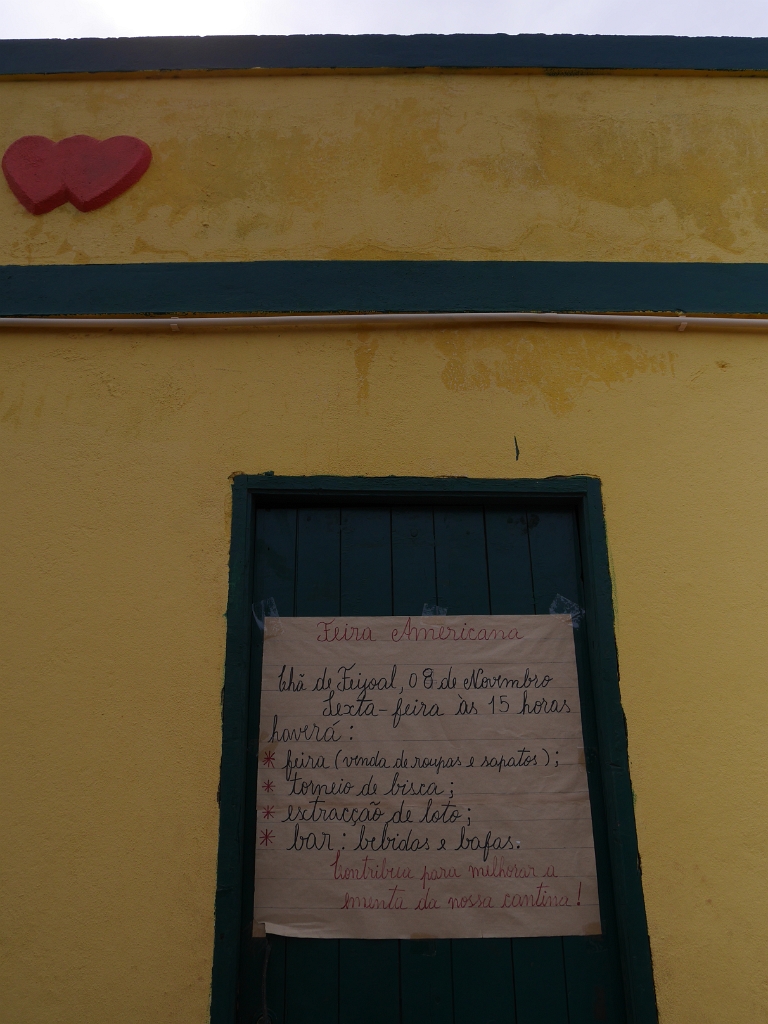 Feira Americana
Chã de Feijoal, 08 de Novembro
Sexta-feira às 15 horas
haverá:
* feira (venda de roupas e sapatos);
* torneio de bisca;
* extracção de loto;
* bar: bebidas e bafas.
Contribua para melhorar a
ementa da nossa cantina!